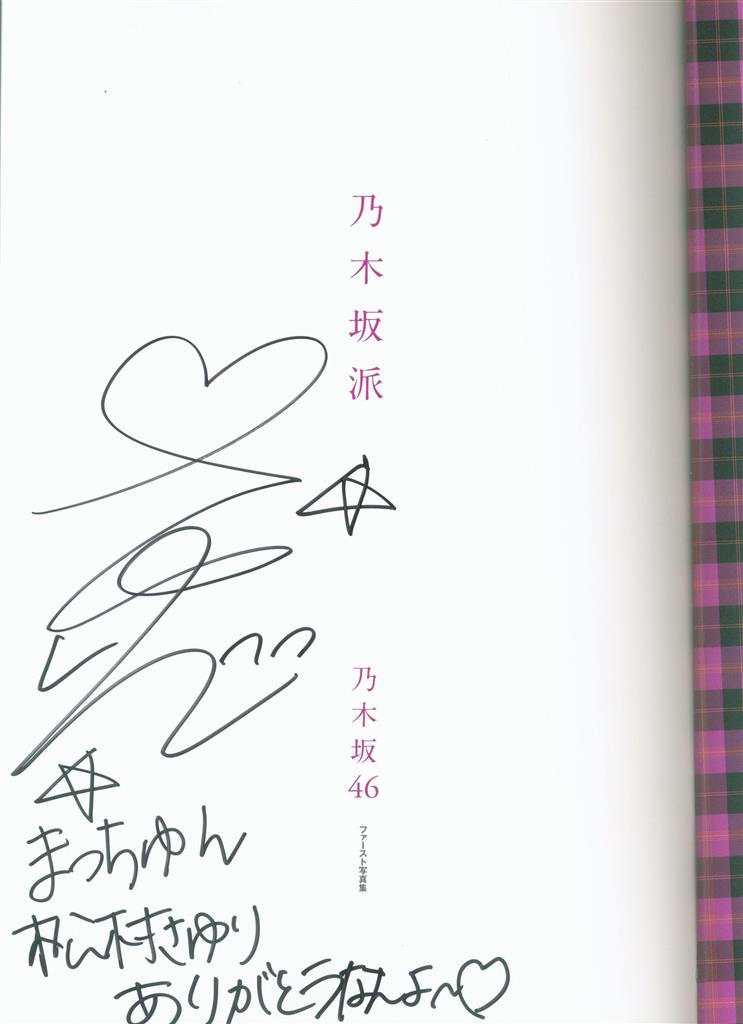 乃木坂派
乃木坂46
ファースト写真集
まっちゅん
松村さゆり
ありがとうなんよ〜♡